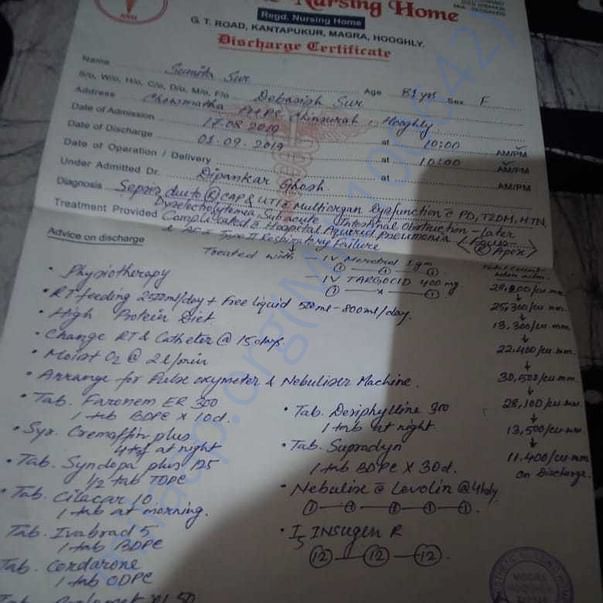 Nursing Home
Regd. Nursing Home
G. T. ROAD, KANTAPUKUR, MAGRA, HOOGHLY.
Discharge Certificate
Name Sumita Sur Age 81 yrs Sex F
S/o, W/o, H/o, C/o, D/o, M/o, F/o Debasish Sur
Address Chowmatha PHPS Chinsurah, Hooghly
Date of Admission 17.08.2019 at 10:00 AM/PM
Date of Discharge 01.09.2019 at 10:00 AM/PM
Date of Operation / Delivery at AM/PM
Under Admitted Dr. Dipankar Ghosh
Diagnosis Sepsis due to CAP & UTI Multiorgan Dysfunction c PD, T2DM, HTN
Dyselectrolytemia Subacute Intestinal Obstruction - later
Treatment Provided Complicated Hospital Aquired Pneumonia
& Type II Respiratory Failure
Advice on discharge
Treated with IV Menotrol 1gm
IV TARGOCID 400mg
• Physiotherapy
• RT feeding 2000ml/day + Free liquid 500ml - 800ml/day.
• High Protein Diet
• Change RT & Catheter @ 15 days
• Moist O2 @ 2l/min
• Arrange for Pulse oxymeter & Nebulizer Machine.
• Tab. Faronem ER 300
1 tab BDPC x 10d.
• Syr. Cremaffin plus
4tsf at night
• Tab. Syndopa plus 125
1/2 tab TDPC
• Tab. Citacar 10
1 tab at morning.
• Tab. Ivabrad 5
1 tab BDPC
• Tab. Cordarone
1 tab ODPC
• Tab. Deriphylline 300
1 tab at night.
• Tab. Supradyn
1 tab BDPC x 30d.
• Nebulise c Levolin @ 4hrly
① ① ① ① ①
• I INSUGEN R
⑫ — ⑫ — ⑫.
28,200/cu.mm.
↓
25,300/cu.mm.
↓
18,300/cu.mm.
↓
22,400/cu.mm.
↓
30,500/cu.mm.
↓
28,100/cu.mm.
↓
13,500/cu.mm.
↓
11,400/cu.mm.
on Discharge.